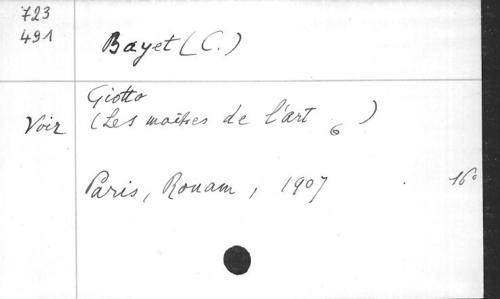 723
491
Bayet (C.)
Giotto
Voir (Les maîtres de l'art 6)
Paris, Rouam, 1907 . 16°